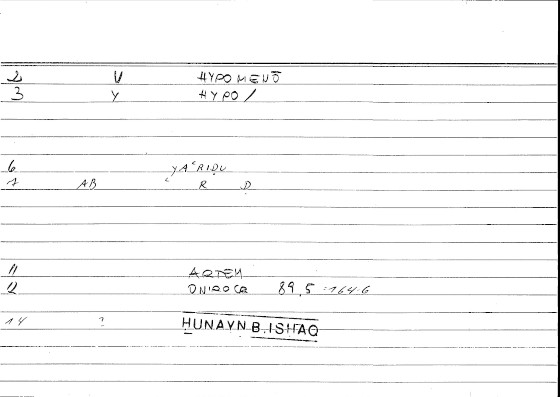 2 V HYPOMENŌ
3 Y HYPO/
6 YAʿRIḌU
1 AB ʿ R Ḍ
11 ARTEM
12 ONIROCR 89,5 = 164.6
14 ? ḤUNAYN B. ISḤAQ